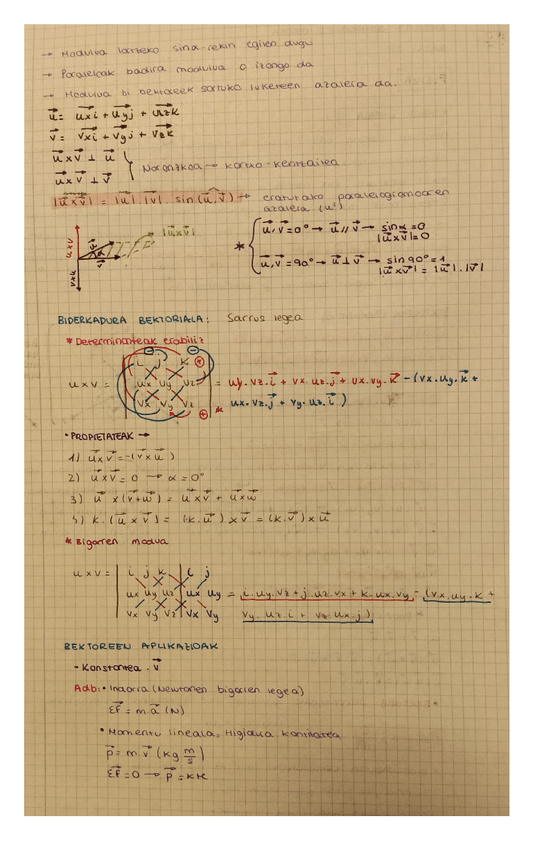 → Modulua lortzeko sinα-rekin egiten dugu
→ Paraleloak badira modulua 0 izango da
→ Modulua bi bektoreek sortuko luketeen azalera da.
u⃗ = uxi⃗ + uyj⃗ + uzk⃗
v⃗ = vxi⃗ + vyj⃗ + vzk⃗
u⃗xv⃗ ⊥ u⃗
u⃗xv⃗ ⊥ v⃗ } Noranzkoa → kortxo-kentzailea
|u⃗xv⃗| = |u⃗|.|v⃗|. sin(u⃗,v⃗) → eratutako paralelogramoaren azalera (u²)
* { u⃗,v⃗ = 0° → u⃗ // v⃗ → sinα = 0
|u⃗xv⃗| = 0
u⃗,v⃗ = 90° → u⃗ ⊥ v⃗ → sin 90° = 1
|u⃗xv⃗| = |u⃗|.|v⃗|
uxv
vxu
u⃗
α
v⃗
|u⃗xv⃗|
BIDERKADURA BEKTORIALA: Sarrus legea
* Determinanteak erabiliz
⊖ ⊖
i j k ⊕
uxv = | ux uy uz | = uy.vz.i⃗ + vx.uz.j⃗ + ux.vy.k⃗ - (vx.uy.k⃗ +
vx vy vz ⊕ * ux.vz.j⃗ + vy.uz.i⃗)
• PROPIETATEAK →
1) u⃗xv⃗ = -(v⃗xu⃗)
2) u⃗xv⃗ = 0 → α = 0°
3) u⃗ x(v⃗+w⃗) = u⃗xv⃗ + u⃗xw⃗
4) k.(u⃗ x v⃗) = (k.u⃗) x v⃗ = (k.v⃗) x u⃗
* Bigarren modua
i j k i j
uxv = | ux uy uz | ux uy = i.uy.vz + j.uz.vx + k.ux.vy - (vx.uy.k +
vx vy vz vx vy vy.uz.i + vz.ux.j)
BEKTOREEN APLIKAZIOAK
- Konstantea . v⃗
Adb: • Indarra (Newtonen bigarren legea)
ΣF⃗ = m.a⃗ (N)
• Momentu lineala = Higidura kantitatea
p⃗ = m.v⃗ (kg m/s)
ΣF⃗ = 0 → p⃗ = kte